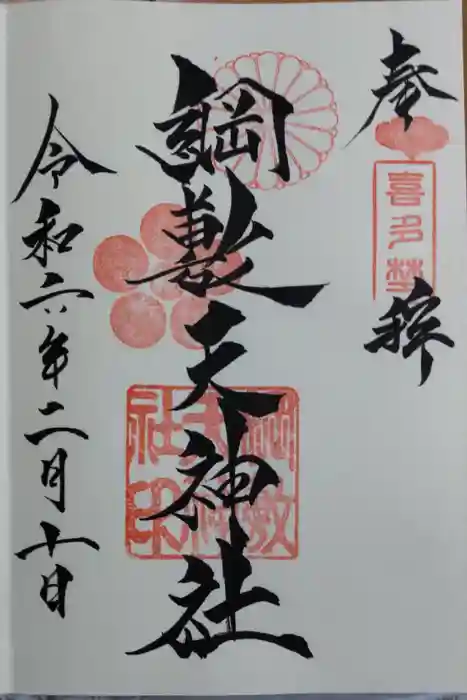 奉拝
喜多埜
綱敷天神社
綱敷天神社印
令和六年二月十日